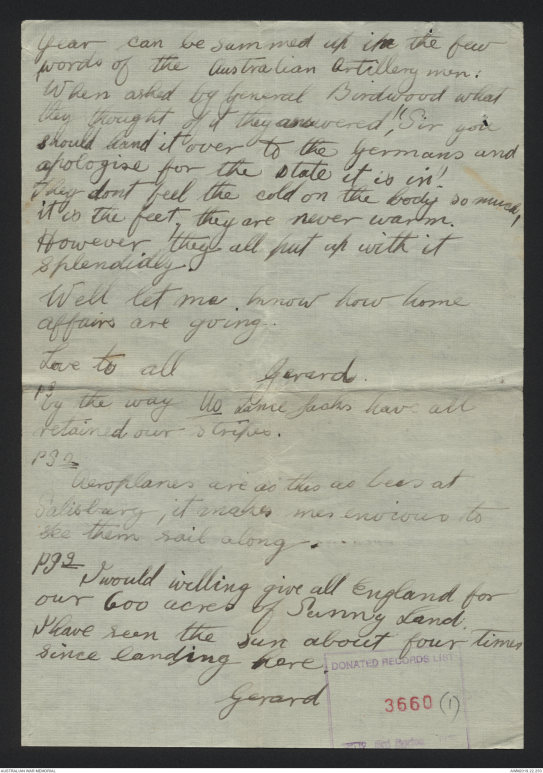 year can be summed up in the few
words of the Australian Artillery men:
When asked by General Birdwood what
they thought of it they answered, "Sir you
should hand it over to the Germans and
apologise for the state it is in"
They dont feel the cold on the body so much,
it is the feet they are never warm.
However, they all put up with it
splendidly.
Well let me know how home
affairs are going.
Love to all Gerard.
PS
by the way us Lance Jacks have all
retained our stripes.
PS 2
Aeroplanes are as this as bees at
Salisbury, it makes mes envious to
see them sail along.
PS 2
I would willing give all England for
our 600 acres of Sunny Land.
I have seen the sun about four times
since landing here.
Gerard
DONATED RECORDS LIST
3660 (1)
AUSTRALIAN WAR MEMORIAL